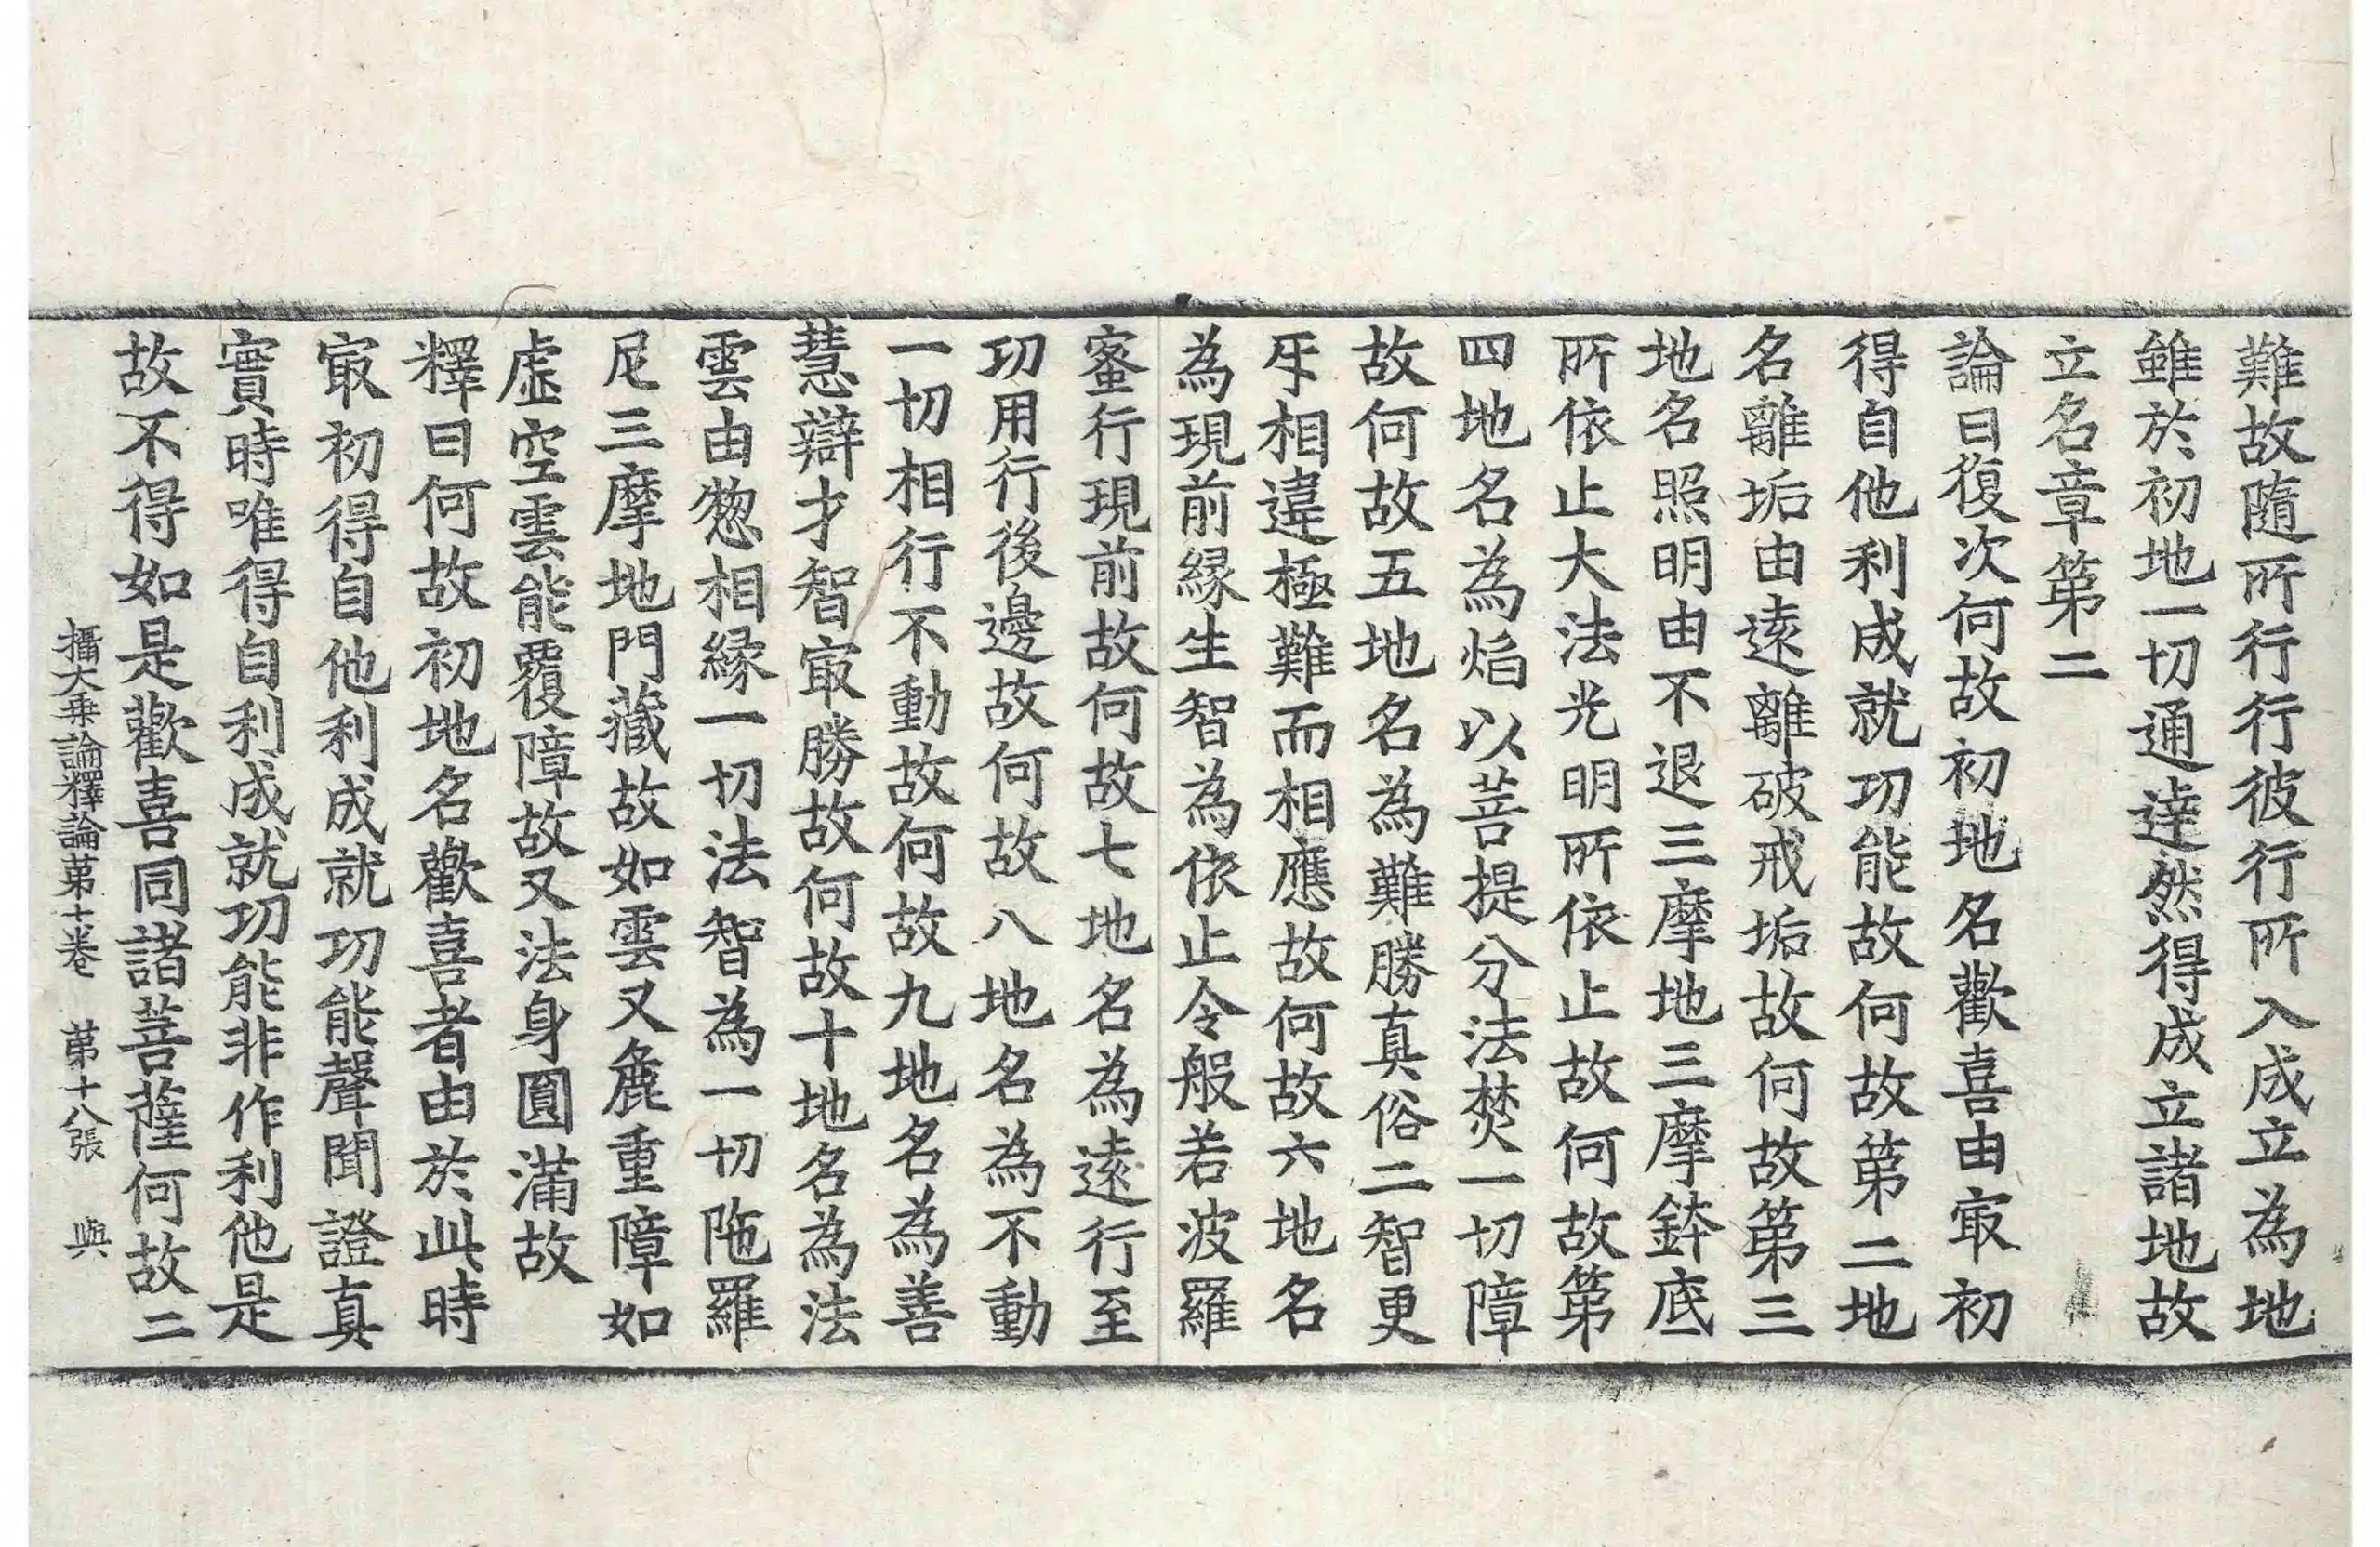 難故隨所行行彼行所入成立為地
雖於初地一切通達然得成立諸地故
立名章第二
論曰復次何故初地名歡喜由㝡初
得自他利成就功能故何故第二地
名離垢由遠離破戒垢故何故第三
地名照明由不退三摩地三摩鉢底
所依止大法光明所依止故何故第
四地名為焰以菩提分法焚一切障
故何故五地名為難勝真俗二智更
㸦相違極難而相應故何故六地名
為現前緣生智為依止令般若波羅
蜜行現前故何故七地名為遠行至
功用行後邊故何故八地名為不動
一切相行不動故何故九地名為善
慧辯才智㝡勝故何故十地名為法
雲由惣相緣一切法智為一切陁羅
尼三摩地門藏故如雲又麁重障如
虛空雲能覆障故又法身圓滿故
釋曰何故初地名歡喜者由於此時
㝡初得自他利成就功能聲聞證真
實時唯得自利成就功能非作利他是
故不得如是歡喜同諸菩薩何故二
攝大乘論釋論第十卷 第十八張 與